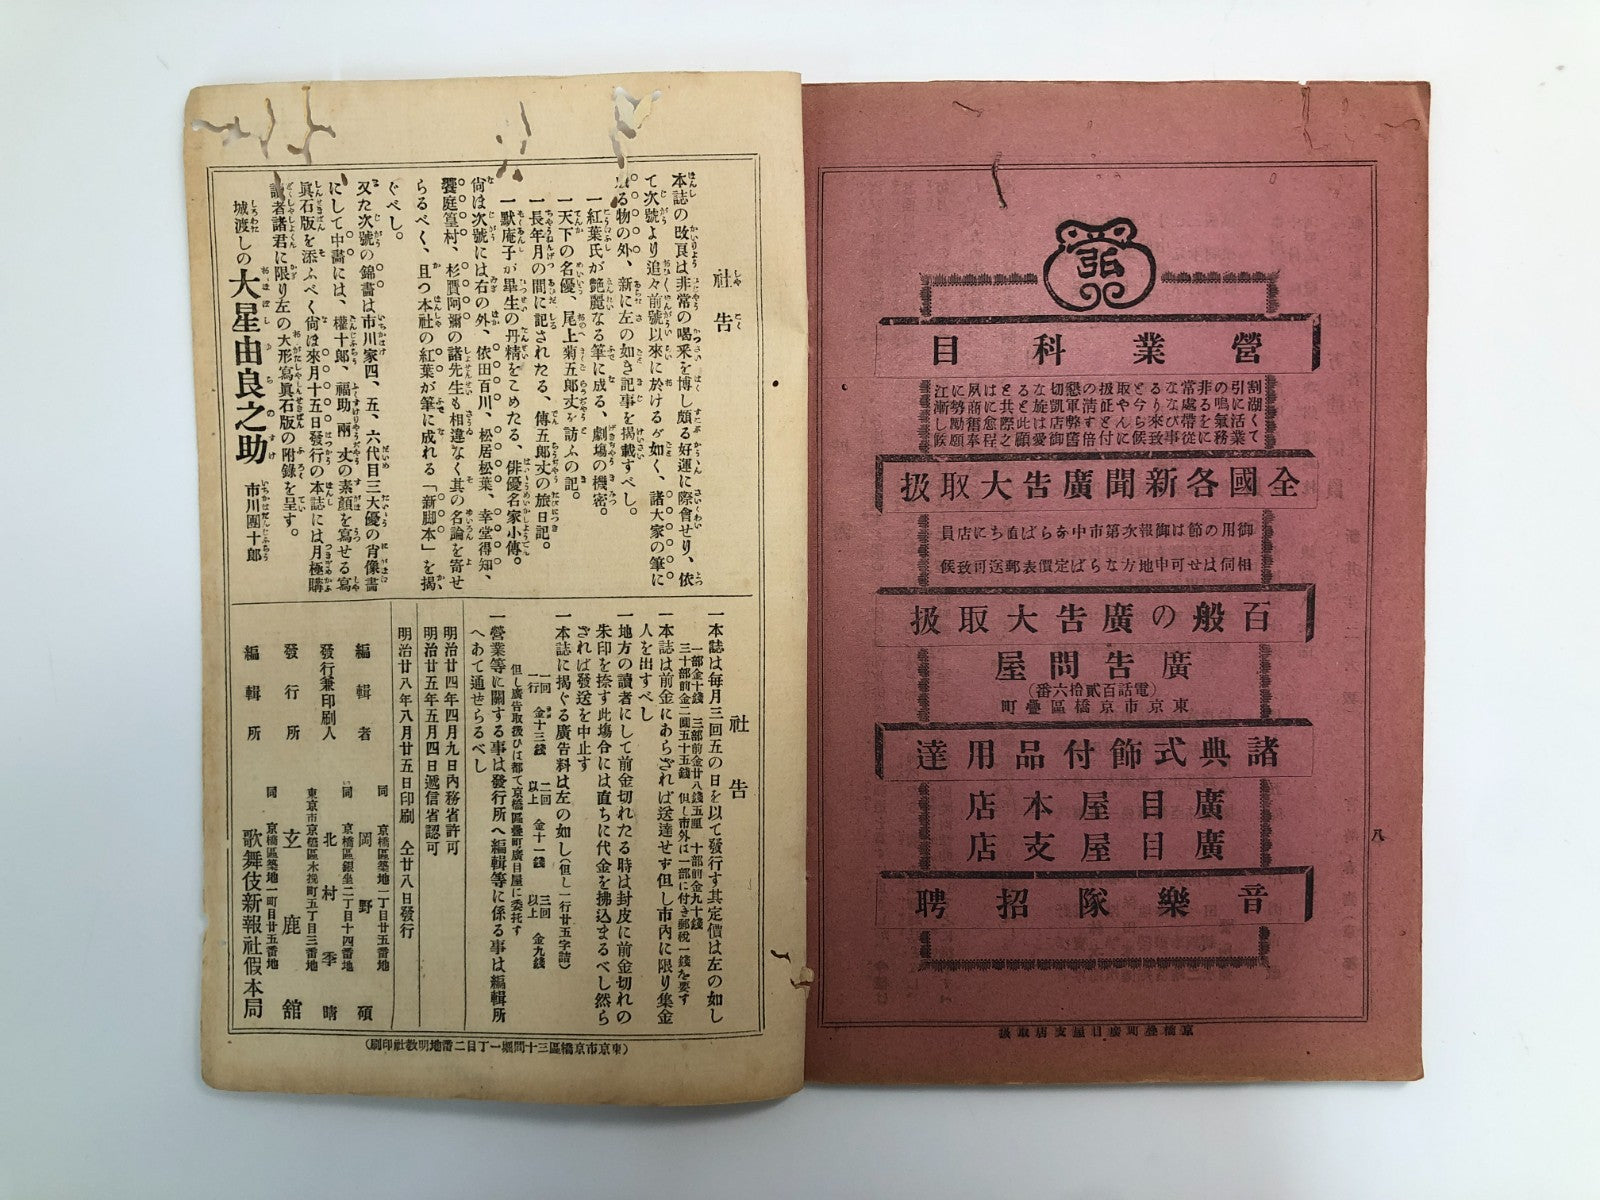 社告
本誌の改良は非常の喝采を博し頗る好運に際會せり、依
て次號より追々前號以來に於けるが如く、諸大家の筆に
成る物の外、新に左の如き記事を掲載すべし。
一紅葉氏が艶麗なる筆に成る、劇塲の機密。
一天下の名優、尾上菊五郎丈を訪ふの記。
一長年月の間に記されたる、傳五郎丈の旅日記。
一默庵子が畢生の丹精をこめたる、俳優名家小傳。
尙は次號には右の外、依田百川、松居松葉、幸堂得知、
饗庭篁村、杉贋阿彌の諸先生も相違なく其の名論を寄せ
らるべく、且つ本社の紅葉が筆に成れる「新脚本」を掲
ぐべし。
又た次號の錦畫は市川家四、五、六代目三大優の肖像畫
にして中畫には、權十郎、福助、兩丈の素顏を寫せる寫
眞石版を添ふべく尙ほ來月十五日發行の本誌には月極購
讀者諸君に限り左の大形寫眞石版の附錄を呈す。
城渡しの 大星由良之助 市川團十郎
社告
一本誌は毎月三回五の日を以て發行す其定價は左の如し
一部金十錢 三部前金廿八錢五厘 十部前金九十錢
三十部前金二圓五十五錢 但し市外は一部に付き郵稅一錢を要す
一本誌は前金にあらざれば送達せす但し市內に限り集金
人を出すべし
一地方の讀者にして前金切れたる時は封皮に前金切れの
朱印を捺す此塲合には直ちに代金を拂込まるべし然ら
ざれば發送を中止す
一本誌に掲ぐる廣告料は左の如し(但し一行廿五字詰)
一回一行 金十三錢 二回以上 金十一錢 三回以上 金九錢
但し廣告取扱ひは都て京橋區疊町廣目屋に委托す
一營業等に關する事は發行所へ編輯等に係る事は編輯所
へあて通せらるべし
明治廿四年四月九日內務省許可
明治廿五年五月四日遞信省認可
明治廿八年八月廿五日印刷 仝廿八日發行
編輯者 同京橋區築地一丁目廿五番地 岡野碩
發行兼印刷人 同京橋區銀坐二丁目十四番地 北村季晴
發行所 東京市京橋區木挽町五丁目三番地 玄鹿舘
編輯所 同京橋區築地一町目廿五番地 歌舞伎新報社假本局
(東京市京橋區三十間堀一丁目二番地明敎社印刷)
弘
營業科目
割引の非常なると取扱の懇切なると共に夙に江
湖に鳴る處なりしが今や征淸軍凱旋に際し商勢漸
全國各新聞廣吿大取扱
御用の節は御報次第市中ならば直ちに店員
相伺はせ可申地方ならば定價表郵送可致候
百般の廣吿大取扱
廣吿問屋
(電話百貳拾六番)
東京市京橋區疊町
諸典式飾付品用達
廣目屋本店
廣目屋支店
音樂隊招聘
京橋疊町廣目屋支店取扱
八